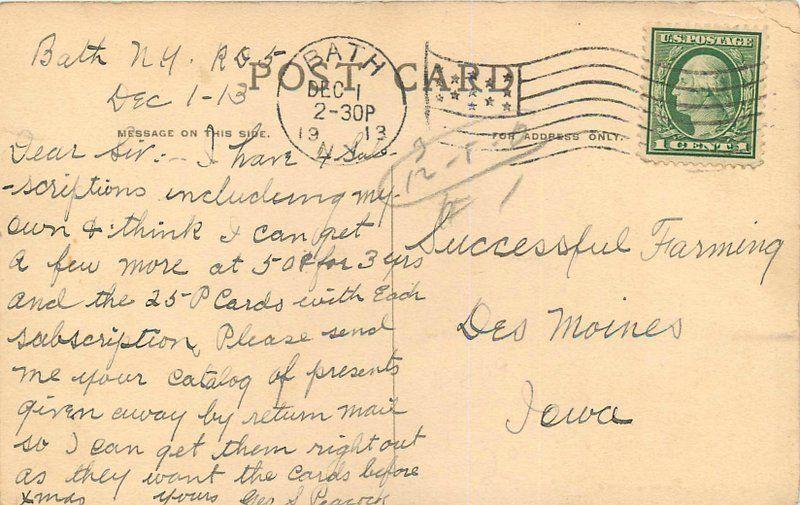 Bath N.Y. RD. 5
Dec 1-13
POST CARD
BATH
DEC 1
2-30P
1913
N.Y.
U.S. POSTAGE
1 CENT 1
MESSAGE ON THIS SIDE.
FOR ADDRESS ONLY.
Dear Sir:- I have 4 Sub-
-scriptions including my
own & think I can get
a few more at 50¢ for 3 yrs
and the 25 P Cards with Each
subscription, Please send
me your catalog of presents
given away by return mail
so I can get them right out
as they want the cards before
Xmas Yours Geo S Peacock
Successful Farming
Des Moines
Iowa